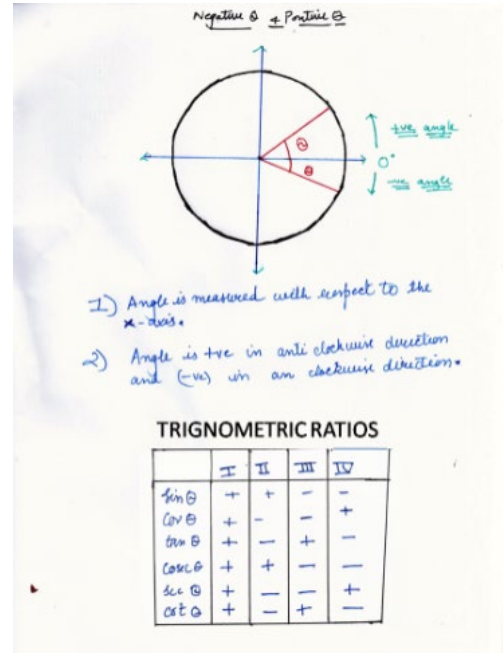 Negative θ & Positive θ
+ve angle
θ
0°
θ
-ve angle
1) Angle is measured with respect to the
x-axis.
2) Angle is +ve in anti clockwise direction
and (-ve) in an clockwise direction.
TRIGNOMETRIC RATIOS
I II III IV
Sin θ + + - -
Cos θ + - - +
tan θ + - + -
Cosec θ + + - -
sec θ + - - +
cot θ + - + -